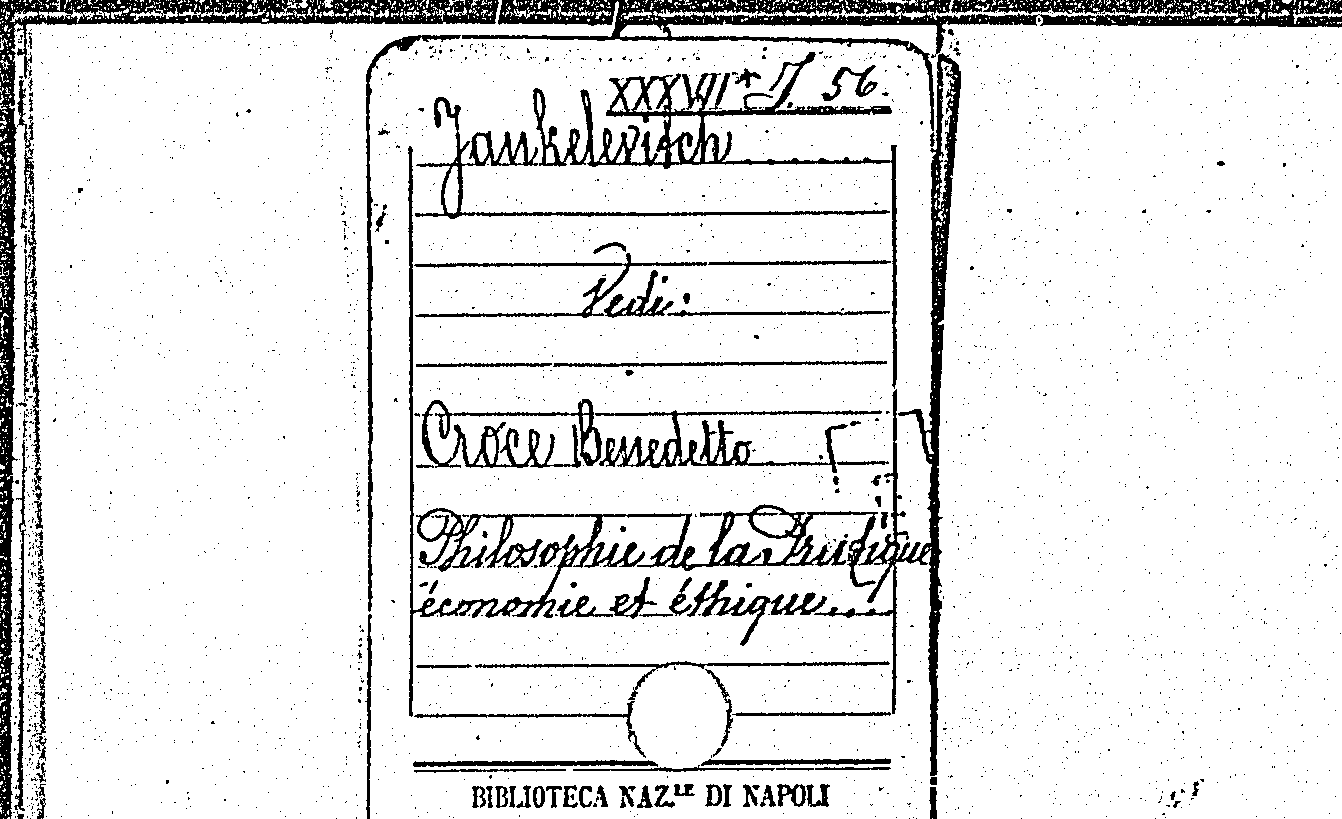 XXXVII* J. 56.
Jankelevitsch
Vedi:
Croce Benedetto
Philosophie de la Pratique
économie et éthique...
BIBLIOTECA NAZ.LE DI NAPOLI